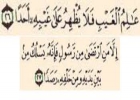 عَٰلِمُ ٱلْغَيْبِ فَلَا يُظْهِرُ عَلَىٰ غَيْبِهِۦٓ أَحَدًا ٢٦
إِلَّا مَنِ ٱرْتَضَىٰ مِن رَّسُولٍ فَإِنَّهُۥ يَسْلُكُ مِنۢ
بَيْنِ يَدَيْهِ وَمِنْ خَلْفِهِۦ رَصَدًا ٢٧